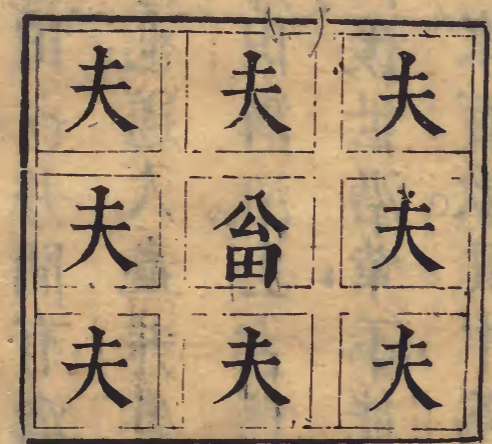 夫 夫 夫
夫 公田 夫
夫 夫 夫